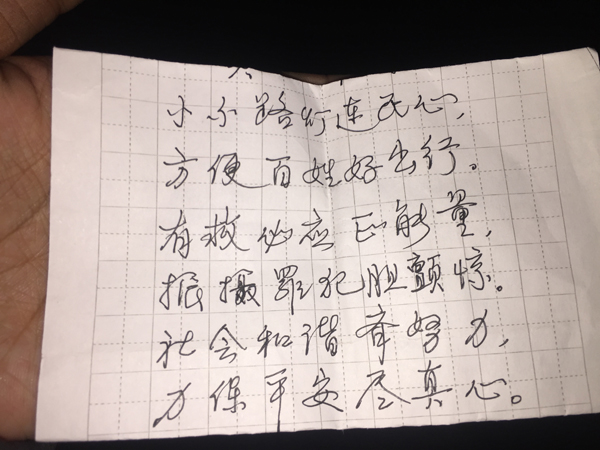 小小路灯连民心,
方便百姓好出行。
有救必应正能量,
振摄罪犯胆颤惊。
社会和谐齐努力,
力保平安尽真心。